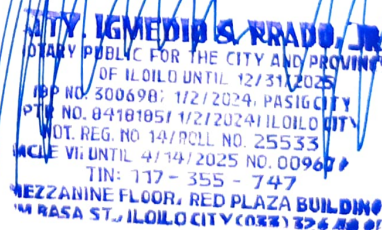 ATTY. IGMEDIO S. PRADO, JR
NOTARY PUBLIC FOR THE CITY AND PROVINCE
OF ILOILO UNTIL 12/31/2025
IBP NO. 300698; 1/2/2024, PASIG CITY
PTR NO. 8418185/ 1/2/2024/ ILOILO CITY
NOT. REG. NO 14/ROLL NO. 25533
MCLE VII UNTIL 4/14/2025 NO.
TIN: 117 - 355 - 747
MEZZANINE FLOOR, RED PLAZA BUILDING
BASA ST., ILOILO CITY (033) 326